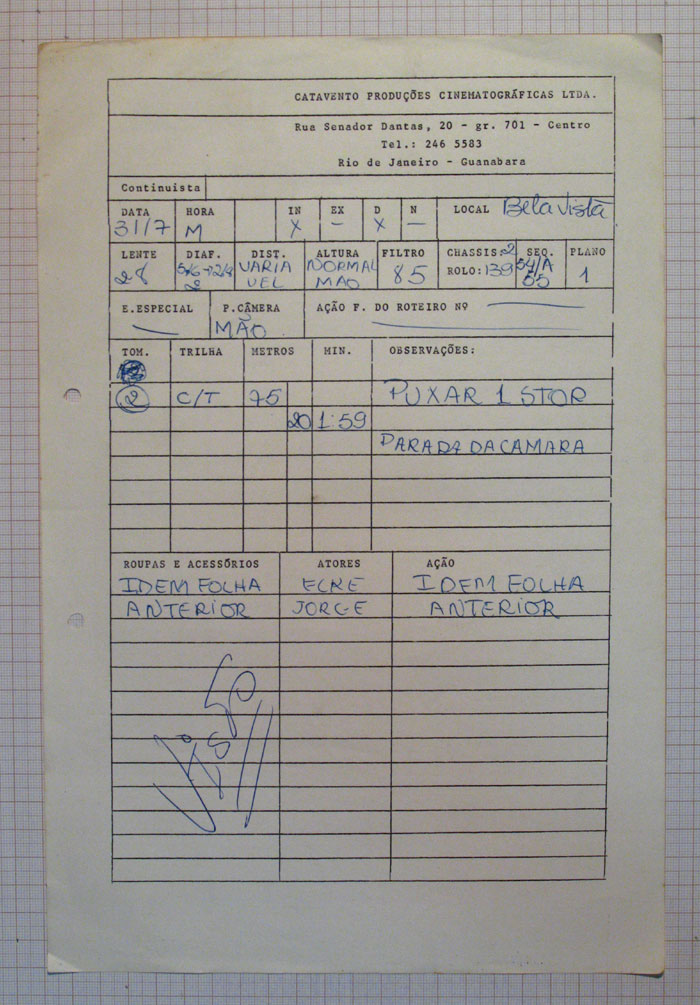 CATAVENTO PRODUÇÕES CINEMATOGRÁFICAS LTDA.
Rua Senador Dantas, 20 - gr. 701 - Centro
Tel.: 246 5583
Rio de Janeiro - Guanabara
Continuista
DATA HORA IN EX D N LOCAL Bela Vista
31/7 M X — X —
LENTE DIAF. DIST. ALTURA FILTRO CHASSIS: 2 SEQ. PLANO
28 2 VARIA VEL NORMAL MAO 85 ROLO: 139 54/A 55 1
E.ESPECIAL P.CÂMERA AÇÃO F. DO ROTEIRO Nº
— MÃO
TOM. TRILHA METROS MIN. OBSERVAÇÕES:
2 C/T 75 PUXAR 1 STOP
20 1:59
PARADA DA CAMARA
ROUPAS E ACESSÓRIOS ATORES AÇÃO
IDEM FOLHA ECKE IDEM FOLHA
ANTERIOR JORGE ANTERIOR